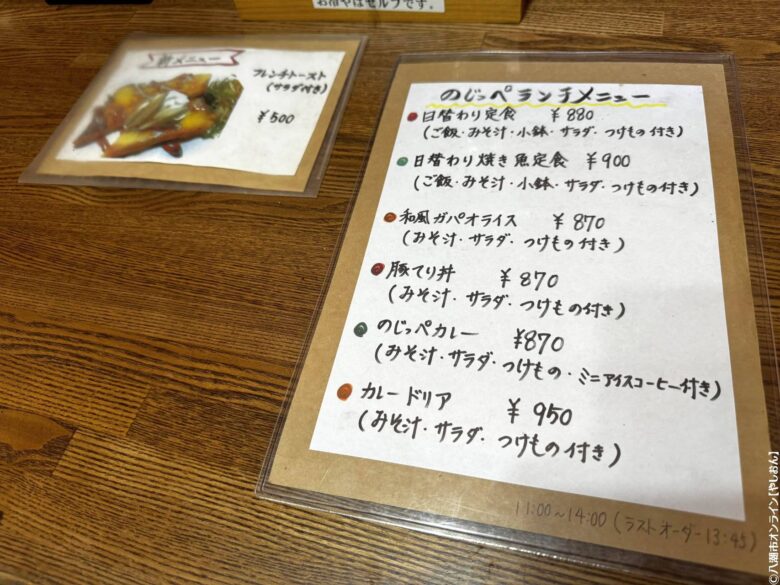 お冷やはセルフです。
新メニュー
フレンチトースト
(サラダ付き)
¥500
のじっぺランチメニュー
日替わり定食 ¥880
(ご飯・みそ汁・小鉢・サラダ・つけもの付き)
日替わり焼き魚定食 ¥900
(ご飯・みそ汁・小鉢・サラダ・つけもの付き)
和風ガパオライス ¥870
(みそ汁・サラダ・つけもの付き)
豚てり丼 ¥870
(みそ汁・サラダ・つけもの付き)
のじっぺカレー ¥870
(みそ汁・サラダ・つけもの・ミニアイスコーヒー付き)
カレードリア ¥950
(みそ汁・サラダ・つけもの付き)
11:00~14:00(ラストオーダー13:45)
©八潮市オンライン【やしおん】